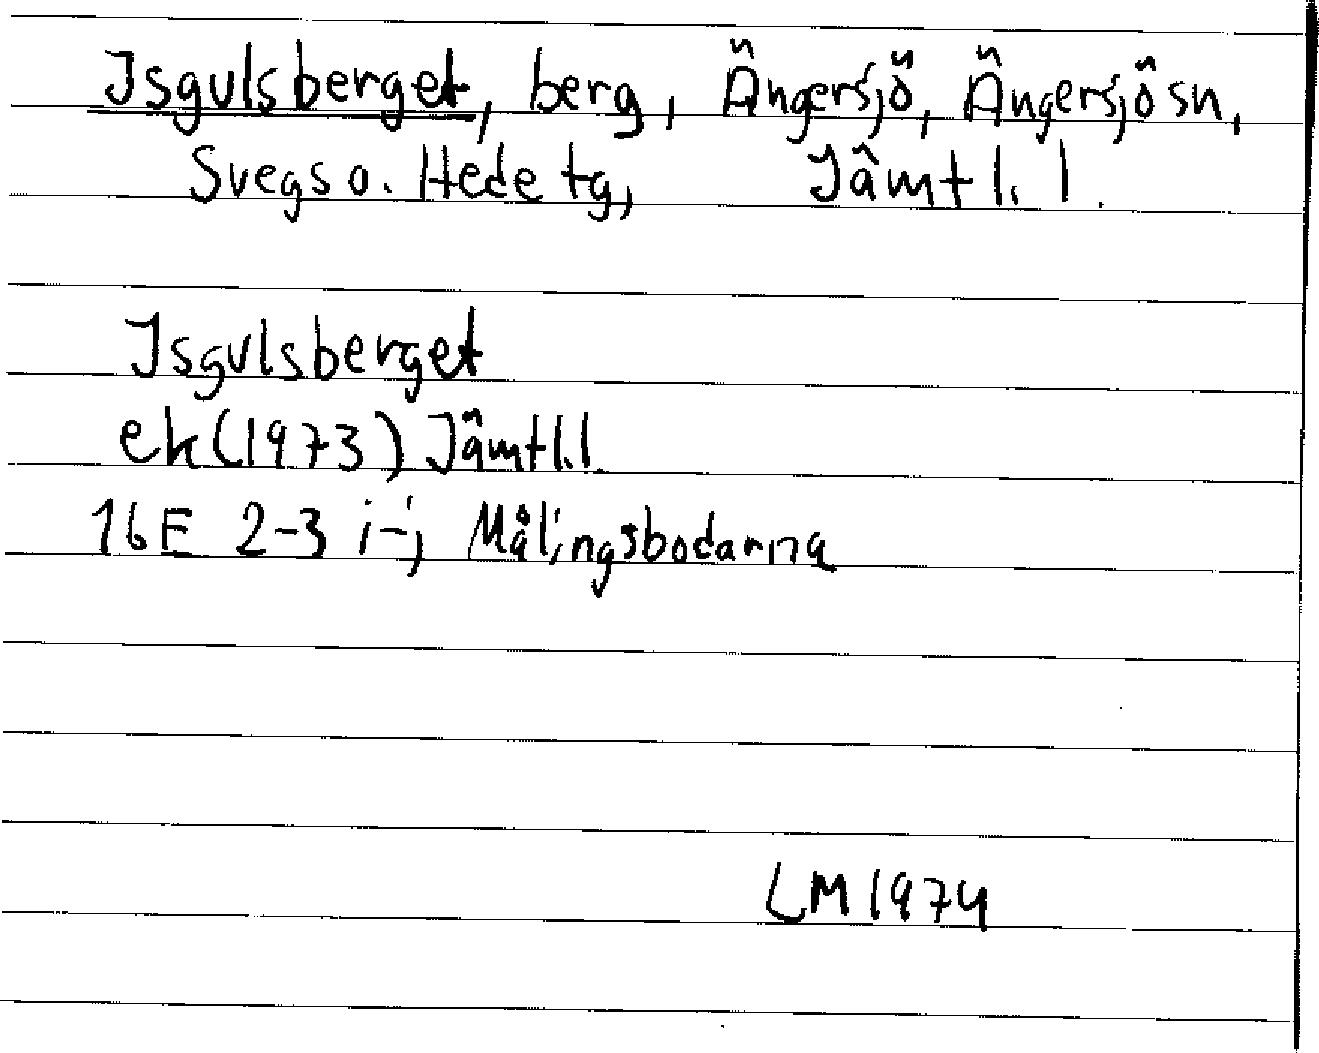 Isgulsberget, berg, Ängersjö, Ängersjö sn,
Svegs o. Hede tg, Jämtl. l.
Isgulsberget
ek (1973) Jämtl. l.
16E 2-3 i-j Målingsbodarna
LM 1974